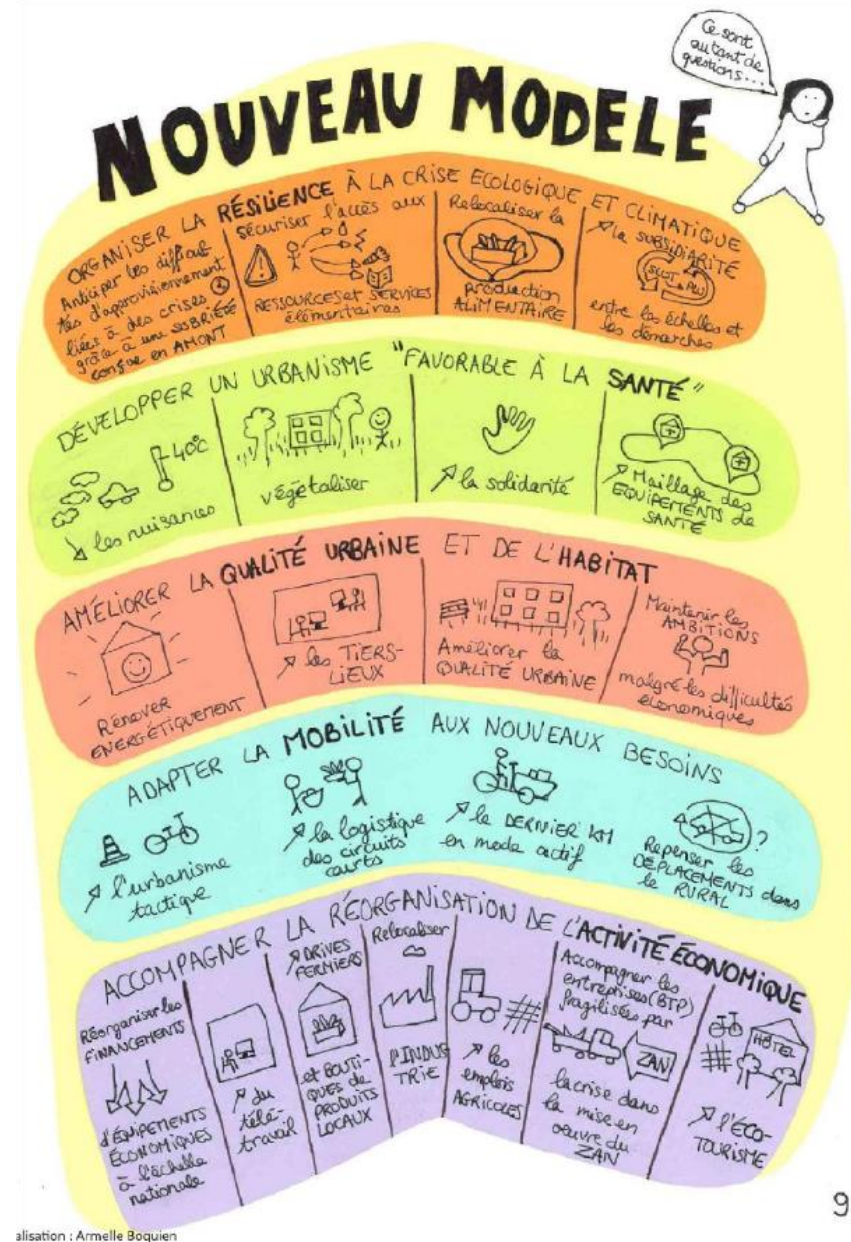 Ce sont
autant de
questions...
NOUVEAU MODELE
ORGANISER LA RÉSILIENCE À LA CRISE ECOLOGIQUE ET CLIMATIQUE
Anticiper les difficul-
tés d'approvisionnement
liées à des crises
grâce à une SOBRIÉTÉ
conçue en AMONT
sécuriser l'accès aux
RESSOURCES et SERVICES
élémentaires
Relocaliser la
production
ALIMENTAIRE
↗ la SUBSIDIARITÉ
SCOT PLU
entre les échelles et
les démarches
DÉVELOPPER UN URBANISME "FAVORABLE À LA SANTÉ"
40°C
↘ les nuisances
végétaliser
↗ la solidarité
↗ Maillage des
EQUIPEMENTS de
SANTÉ
AMÉLIORER LA QUALITÉ URBAINE ET DE L'HABITAT
Rénover
ENERGÉTIQUEMENT
↗ les TIERS-
LIEUX
Améliorer la
QUALITÉ URBAINE
Maintenir les
AMBITIONS
malgré les difficultés
économiques
ADAPTER LA MOBILITÉ AUX NOUVEAUX BESOINS
↗ l'urbanisme
tactique
↗ la logistique
des circuits
courts
↗ le DERNIER KM
en mode actif
?
Repenser les
DÉPLACEMENTS dans
le RURAL
ACCOMPAGNER LA RÉORGANISATION DE L'ACTIVITÉ ÉCONOMIQUE
Réorganiser les
FINANCEMENTS
d'ÉQUIPEMENTS
ÉCONOMIQUES
à l'échelle
nationale
↗ du
télé-
travail
↗ DRIVES
FERMIERS
et BOUTI-
QUES de
PRODUITS
LOCAUX
Relocaliser
l'INDUS
TRIE
↗ les
emplois
AGRICOLES
Accompagner les
entreprises (BTP)
fragilisées par
ZAN
la crise dans
la mise en
œuvre du
ZAN
HÔTEL
↗ l'ÉCO-
TOURISME
9
alisation : Armelle Boquien